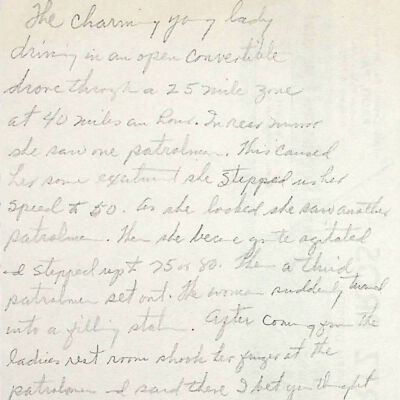 The charming young lady
driving in an open convertible
drove through a 25 mile zone
at 40 miles an hour. In rear mirror
she saw one patrolman. This caused
her some excitment she stepped up her
speed to 50. As she looked she saw another
patrolman. Then she became quite agitated
and stepped up to 75 or 80. Then a third
patrolman set out. The woman suddenly turned
into a filling station. After coming from the
ladies rest room shook her finger at the
patrolmen and said there I bet you thought